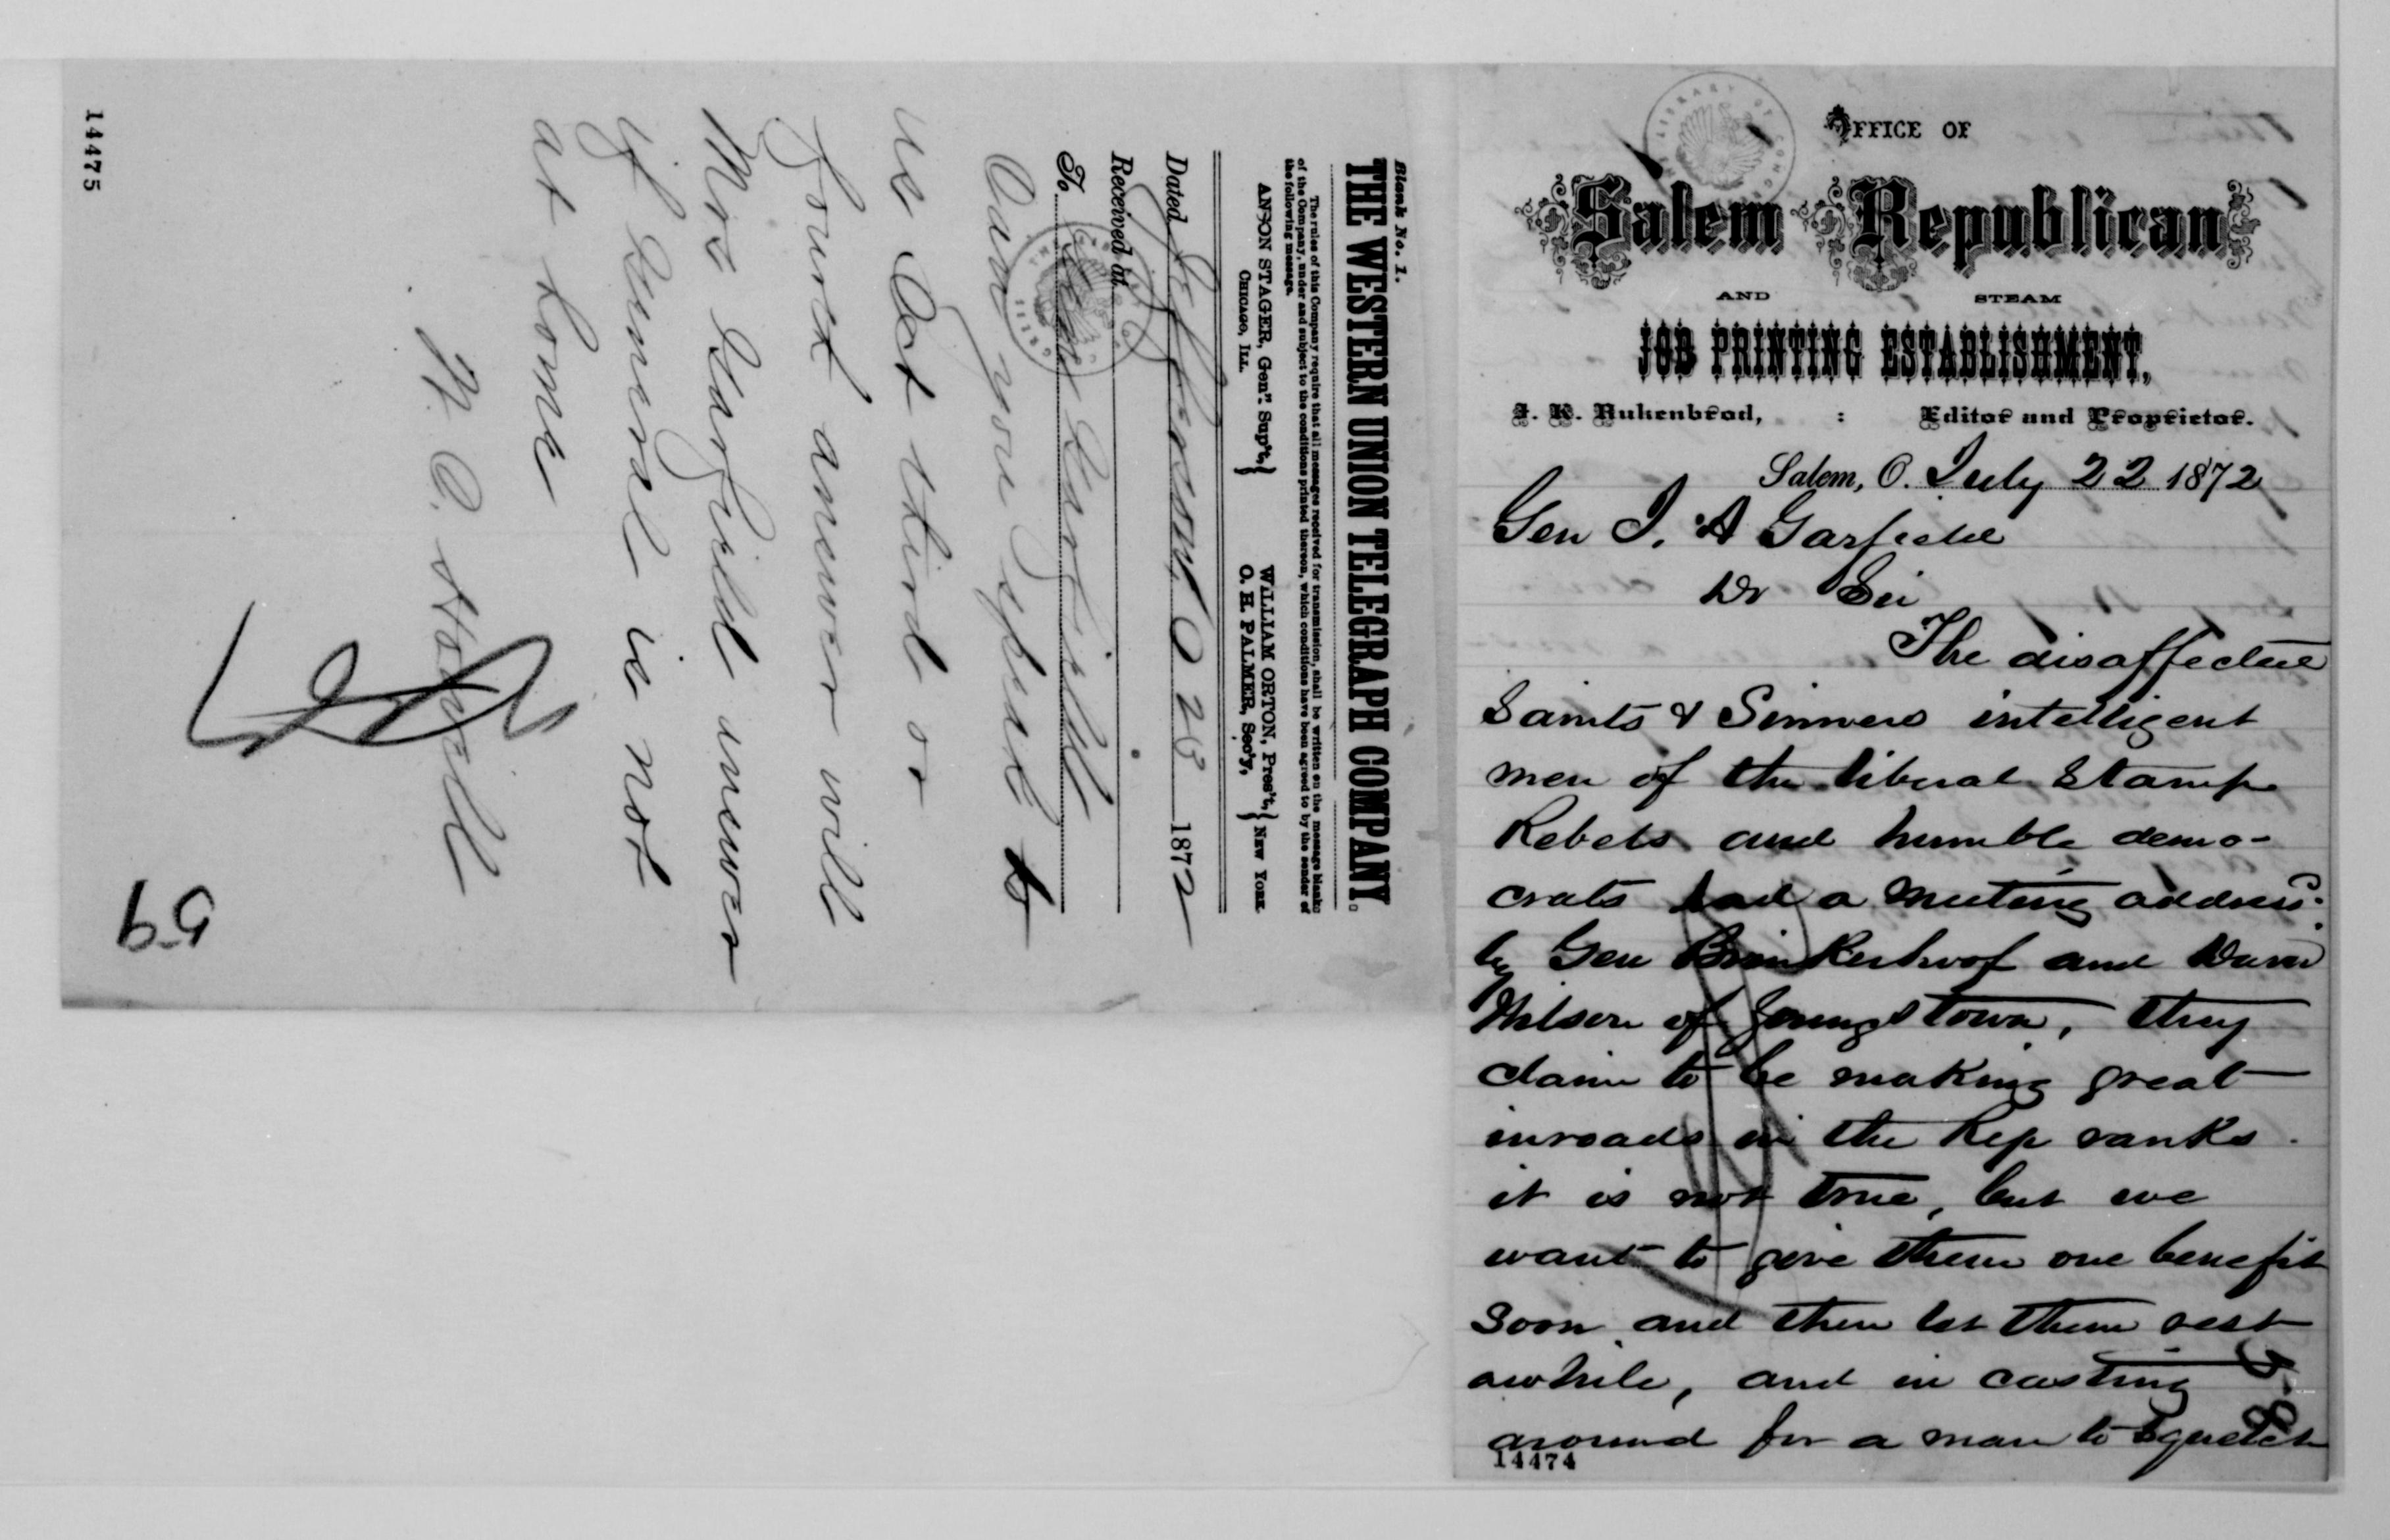 Blank No. 1.
THE WESTERN UNION TELEGRAPH COMPANY.
The rules of this Company require that all messages received for transmission, shall be written on the message blanks
of the Company, under and subject to the conditions printed thereon, which conditions have been agreed to by the sender of
the following message.
ANSON STAGER, Gen'l Sup't, } WILLIAM ORTON, Pres't, } NEW YORK.
CHICAGO, ILL. O. H. PALMER, Sec'y,
Dated Jefferson O 23 1872
Received at
To Garfield
Can you speak to
us Oct third or
fourth answer will
Mrs Garfield answer
if General is not
at home
14475
59
OFFICE OF
Salem Republican
AND STEAM
JOB PRINTING ESTABLISHMENT.
J. K. Rukenbrod, : Editor and Proprietor.
Salem, O. July 22 1872
Gen J. A Garfield
Dr Sir
The disaffected
Saints & Sinners intelligent
men of the liberal Stamp
Rebels and humble demo-
crats had a meeting address.
by Gen Brinkerhoof and
Wilson of Youngstown, they
claim to be making great
inroads in the Rep ranks.
it is not true, but we
want to give them one benefit
soon and then let them rest
awhile, and in casting
around for a man to
14474
58
LIBRARY OF CONGRESS